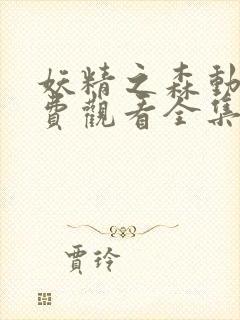 妖精之森動
費觀看全集
賈玲